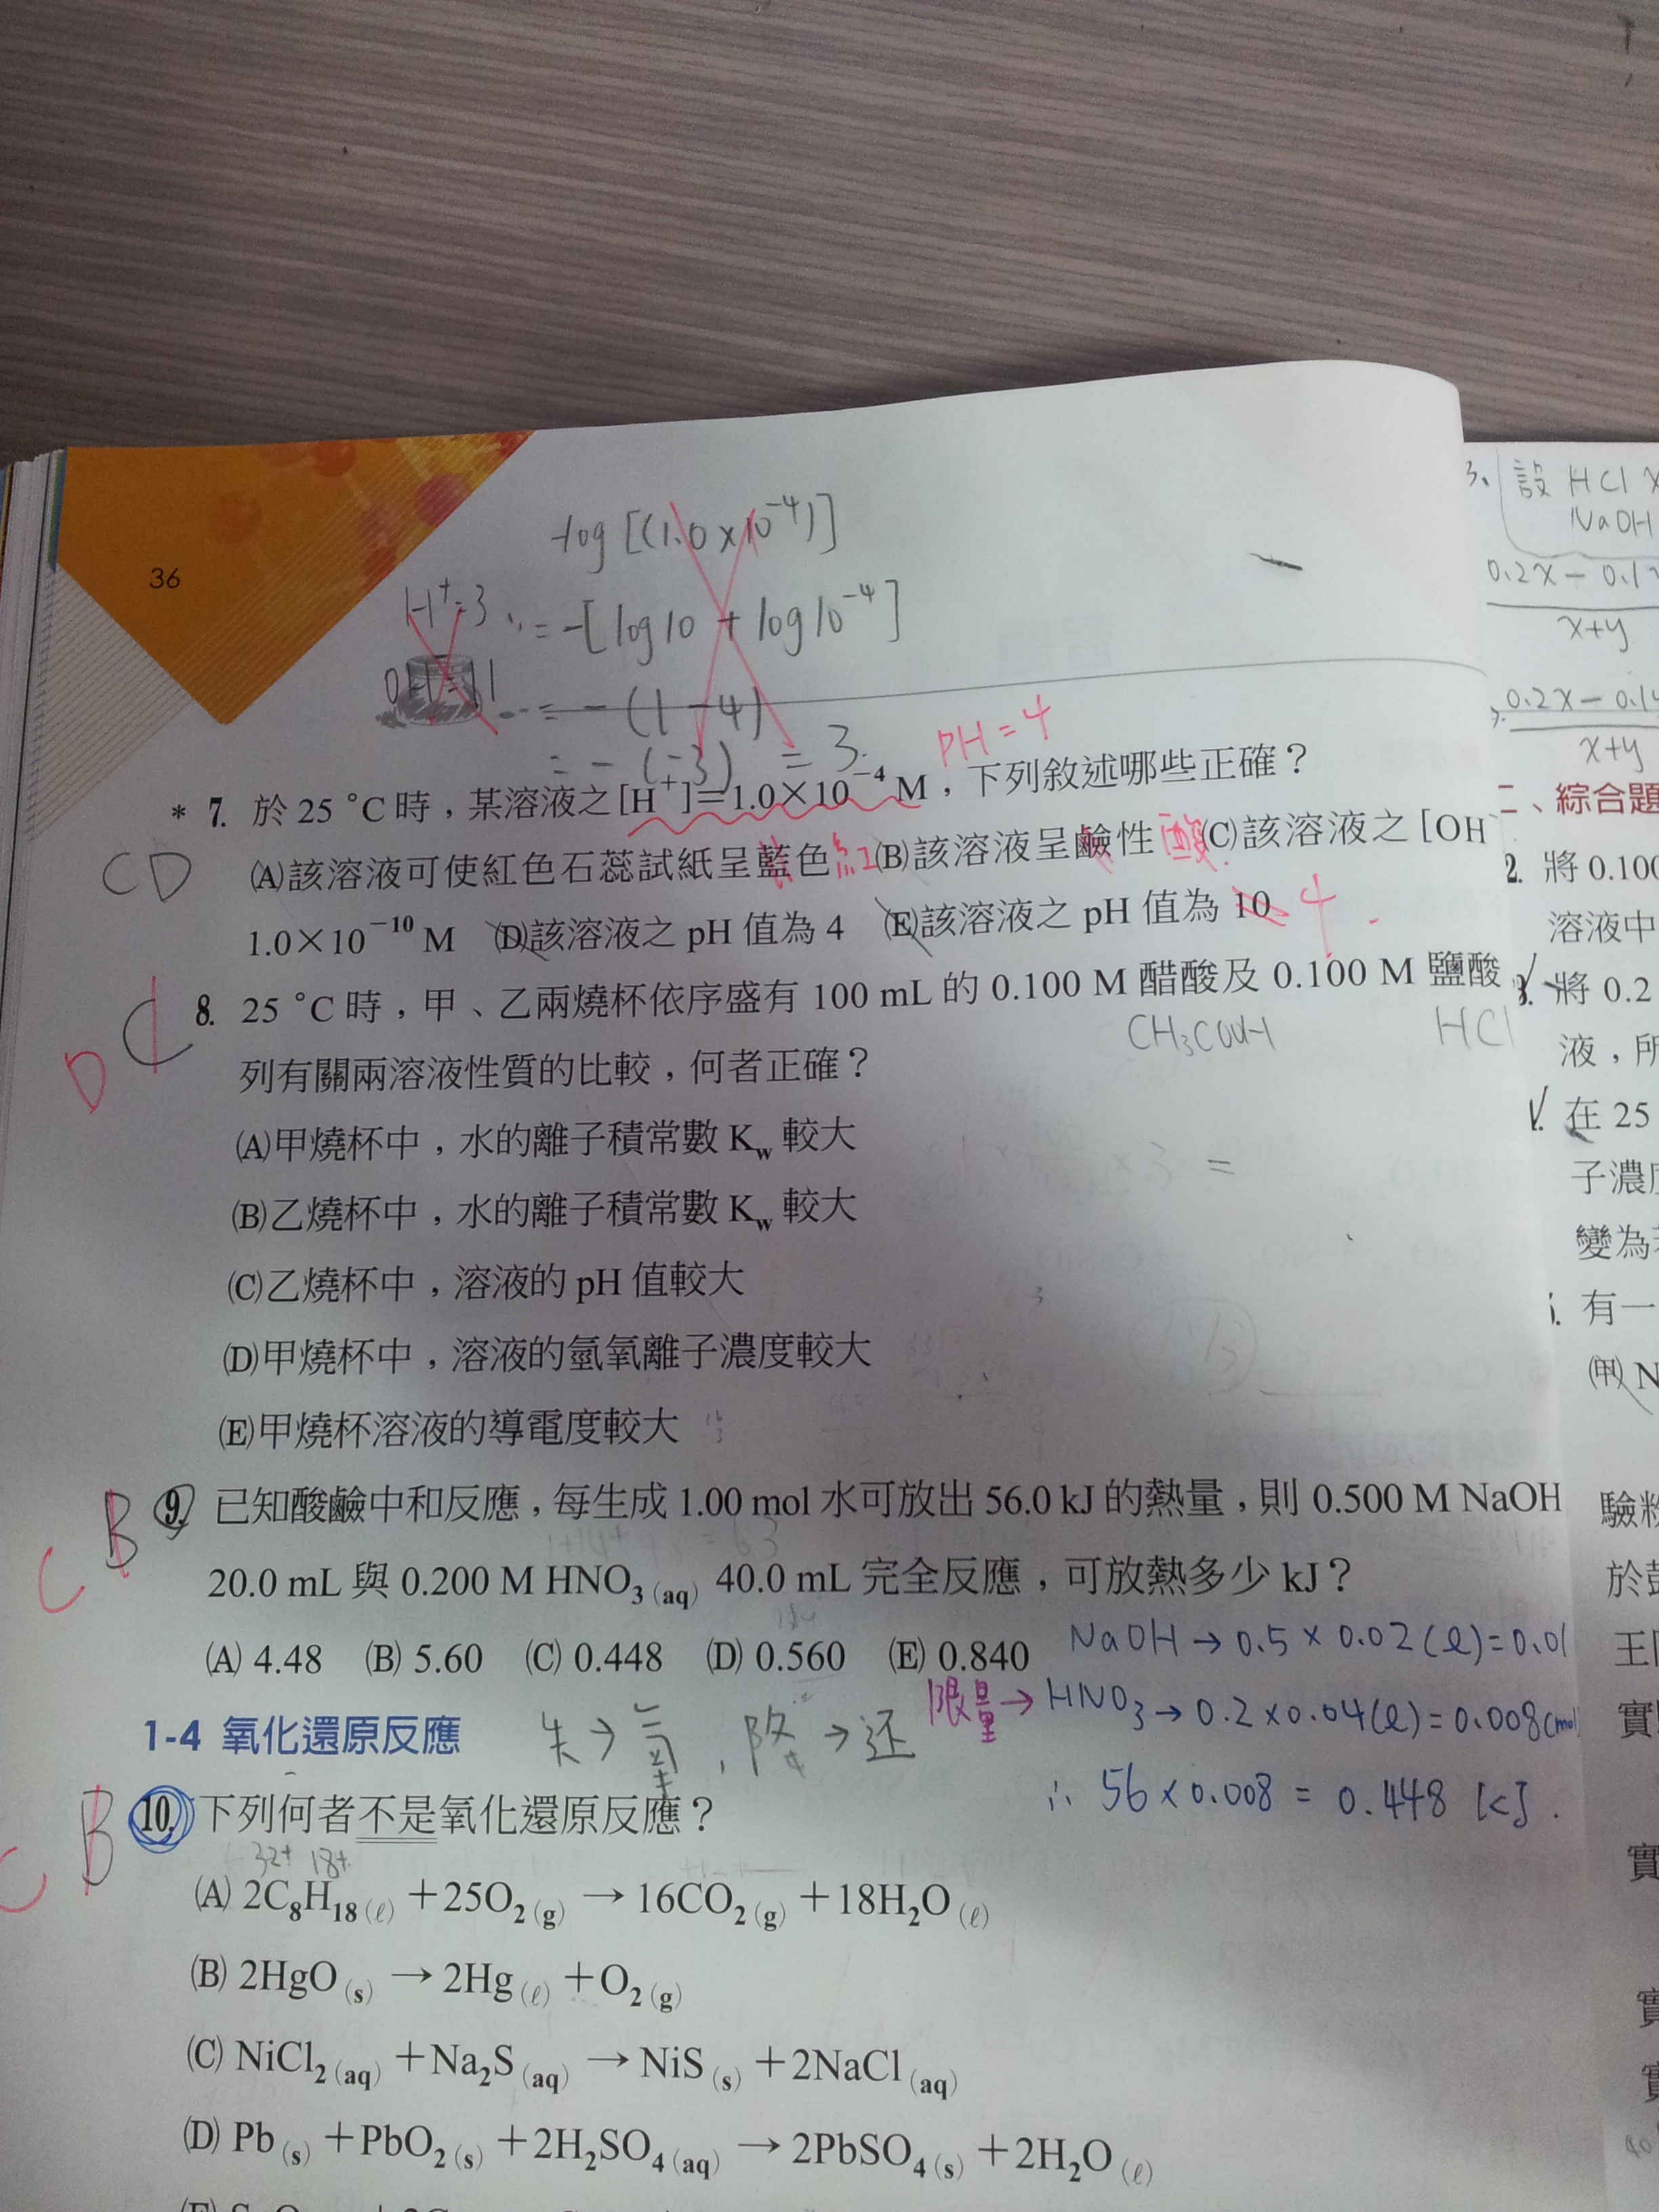 36
-log [(1.0×10⁻⁴)]
H⁺=3
= -[log10 + log10⁻⁴]
= -(1-4)
= -(-3) = 3
PH=4
* 7. 於 25 °C 時，某溶液之 [H⁺]=1.0×10⁻⁴ M，下列敘述哪些正確？
CD
(A)該溶液可使紅色石蕊試紙呈藍色 紅 (B)該溶液呈鹼性 酸 (C)該溶液之 [OH
1.0×10⁻¹⁰ M (D)該溶液之 pH 值為 4 (E)該溶液之 pH 值為 10 4
D C
8. 25 °C 時，甲、乙兩燒杯依序盛有 100 mL 的 0.100 M 醋酸及 0.100 M 鹽酸
CH₃COOH HCl
列有關兩溶液性質的比較，何者正確？
(A)甲燒杯中，水的離子積常數 Kw 較大
(B)乙燒杯中，水的離子積常數 Kw 較大
(C)乙燒杯中，溶液的 pH 值較大
(D)甲燒杯中，溶液的氫氧離子濃度較大
(E)甲燒杯溶液的導電度較大
C B
9. 已知酸鹼中和反應，每生成 1.00 mol 水可放出 56.0 kJ 的熱量，則 0.500 M NaOH
20.0 mL 與 0.200 M HNO₃(aq) 40.0 mL 完全反應，可放熱多少 kJ？
(A) 4.48 (B) 5.60 (C) 0.448 (D) 0.560 (E) 0.840
NaOH → 0.5 × 0.02 (ℓ) = 0.01
限量 → HNO₃ → 0.2 × 0.04 (ℓ) = 0.008 (mol
∴ 56 × 0.008 = 0.448 kJ.
1-4 氧化還原反應
失→氧，降→还
C B
10. 下列何者不是氧化還原反應？
(A) 2C₈H₁₈(ℓ) +25O₂(g) → 16CO₂(g) +18H₂O(ℓ)
(B) 2HgO(s) → 2Hg(ℓ) +O₂(g)
(C) NiCl₂(aq) +Na₂S(aq) → NiS(s) +2NaCl(aq)
(D) Pb(s) +PbO₂(s) +2H₂SO₄(aq) → 2PbSO₄(s) +2H₂O(ℓ)
3. 設 HCl X
NaOH
0.2x - 0.1
x+y
0.2x - 0.1
x+y
二、綜合題
2. 將 0.100
溶液中
將 0.2
液，所
在 25
子濃度
變為
有一
(甲) N
驗粉
於
王
實
實
實